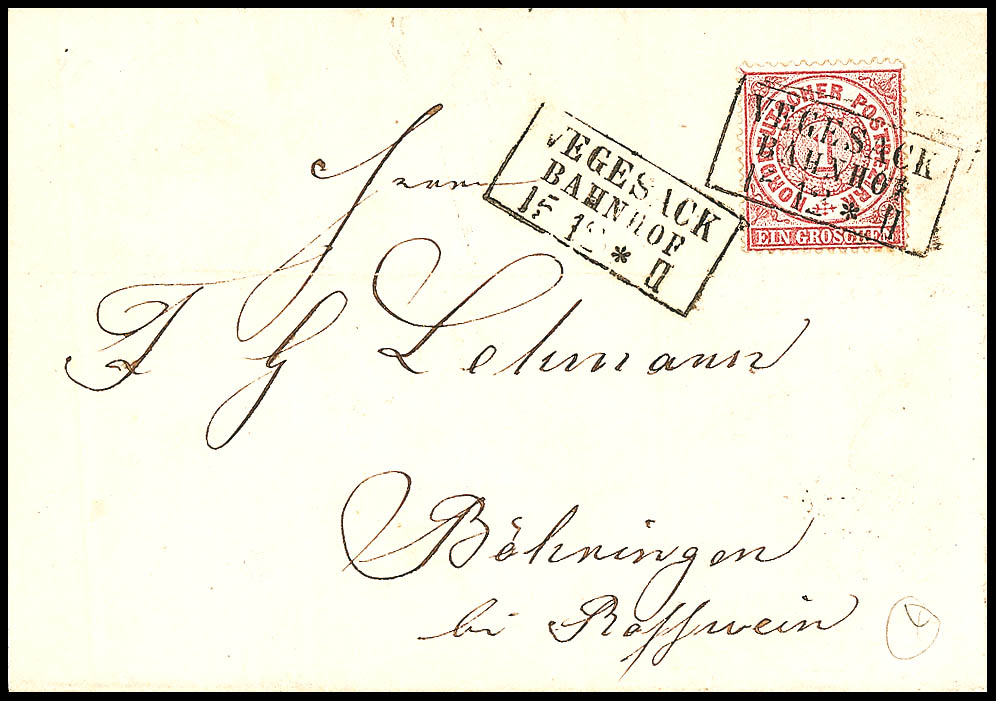 NORDDEUTSCHER POSTBEZIRK
1
EIN GROSCHEN
VEGESACK
BAHNHOF
15 12 * II
VEGESACK
BAHNHOF
15 12 * II
Herrn
F G Lehmann
Böhringen
bei Rosswein